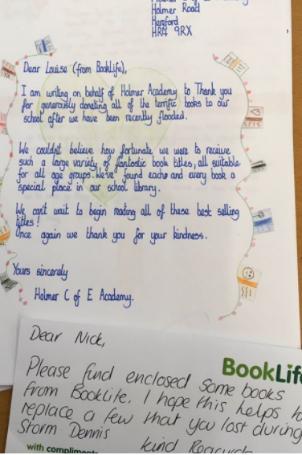 Holmer Road
Hereford
HR4 9RX
Dear Louise (from BookLife),
I am writing on behalf of Holmer Academy to Thank you
for generously donating all of the terrific books to our
school after we have been recently flooded.
We couldn't believe how fortunate we were to receive
such a large variety of fantastic book titles, all suitable
for all age groups. We've found each and every book a
special place in our school library.
We can't wait to begin reading all of these best selling
titles!
Once again we thank you for your kindness.
Yours sincerely
Holmer C of E Academy.
Dear Nick,
BookLife
Please find enclosed some books
from BookLife. I hope this helps to
replace a few that you lost during
Storm Dennis
with compliments
kind Regards